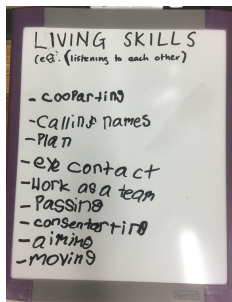 LIVING SKILLS
(eg: (listening to each other)
- cooparting
- Calling names
- Plan
- eye contact
- Work as a team
- Passing
- consentarting
- aiming
- moving